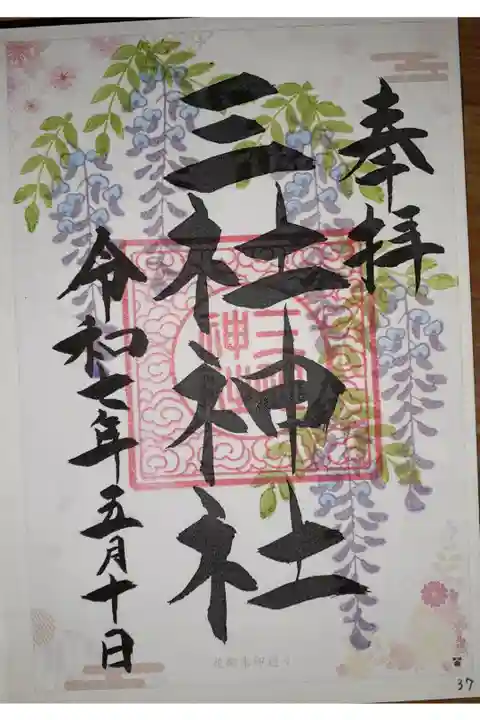 奉拝
三社神社
令和七年五月十日
37